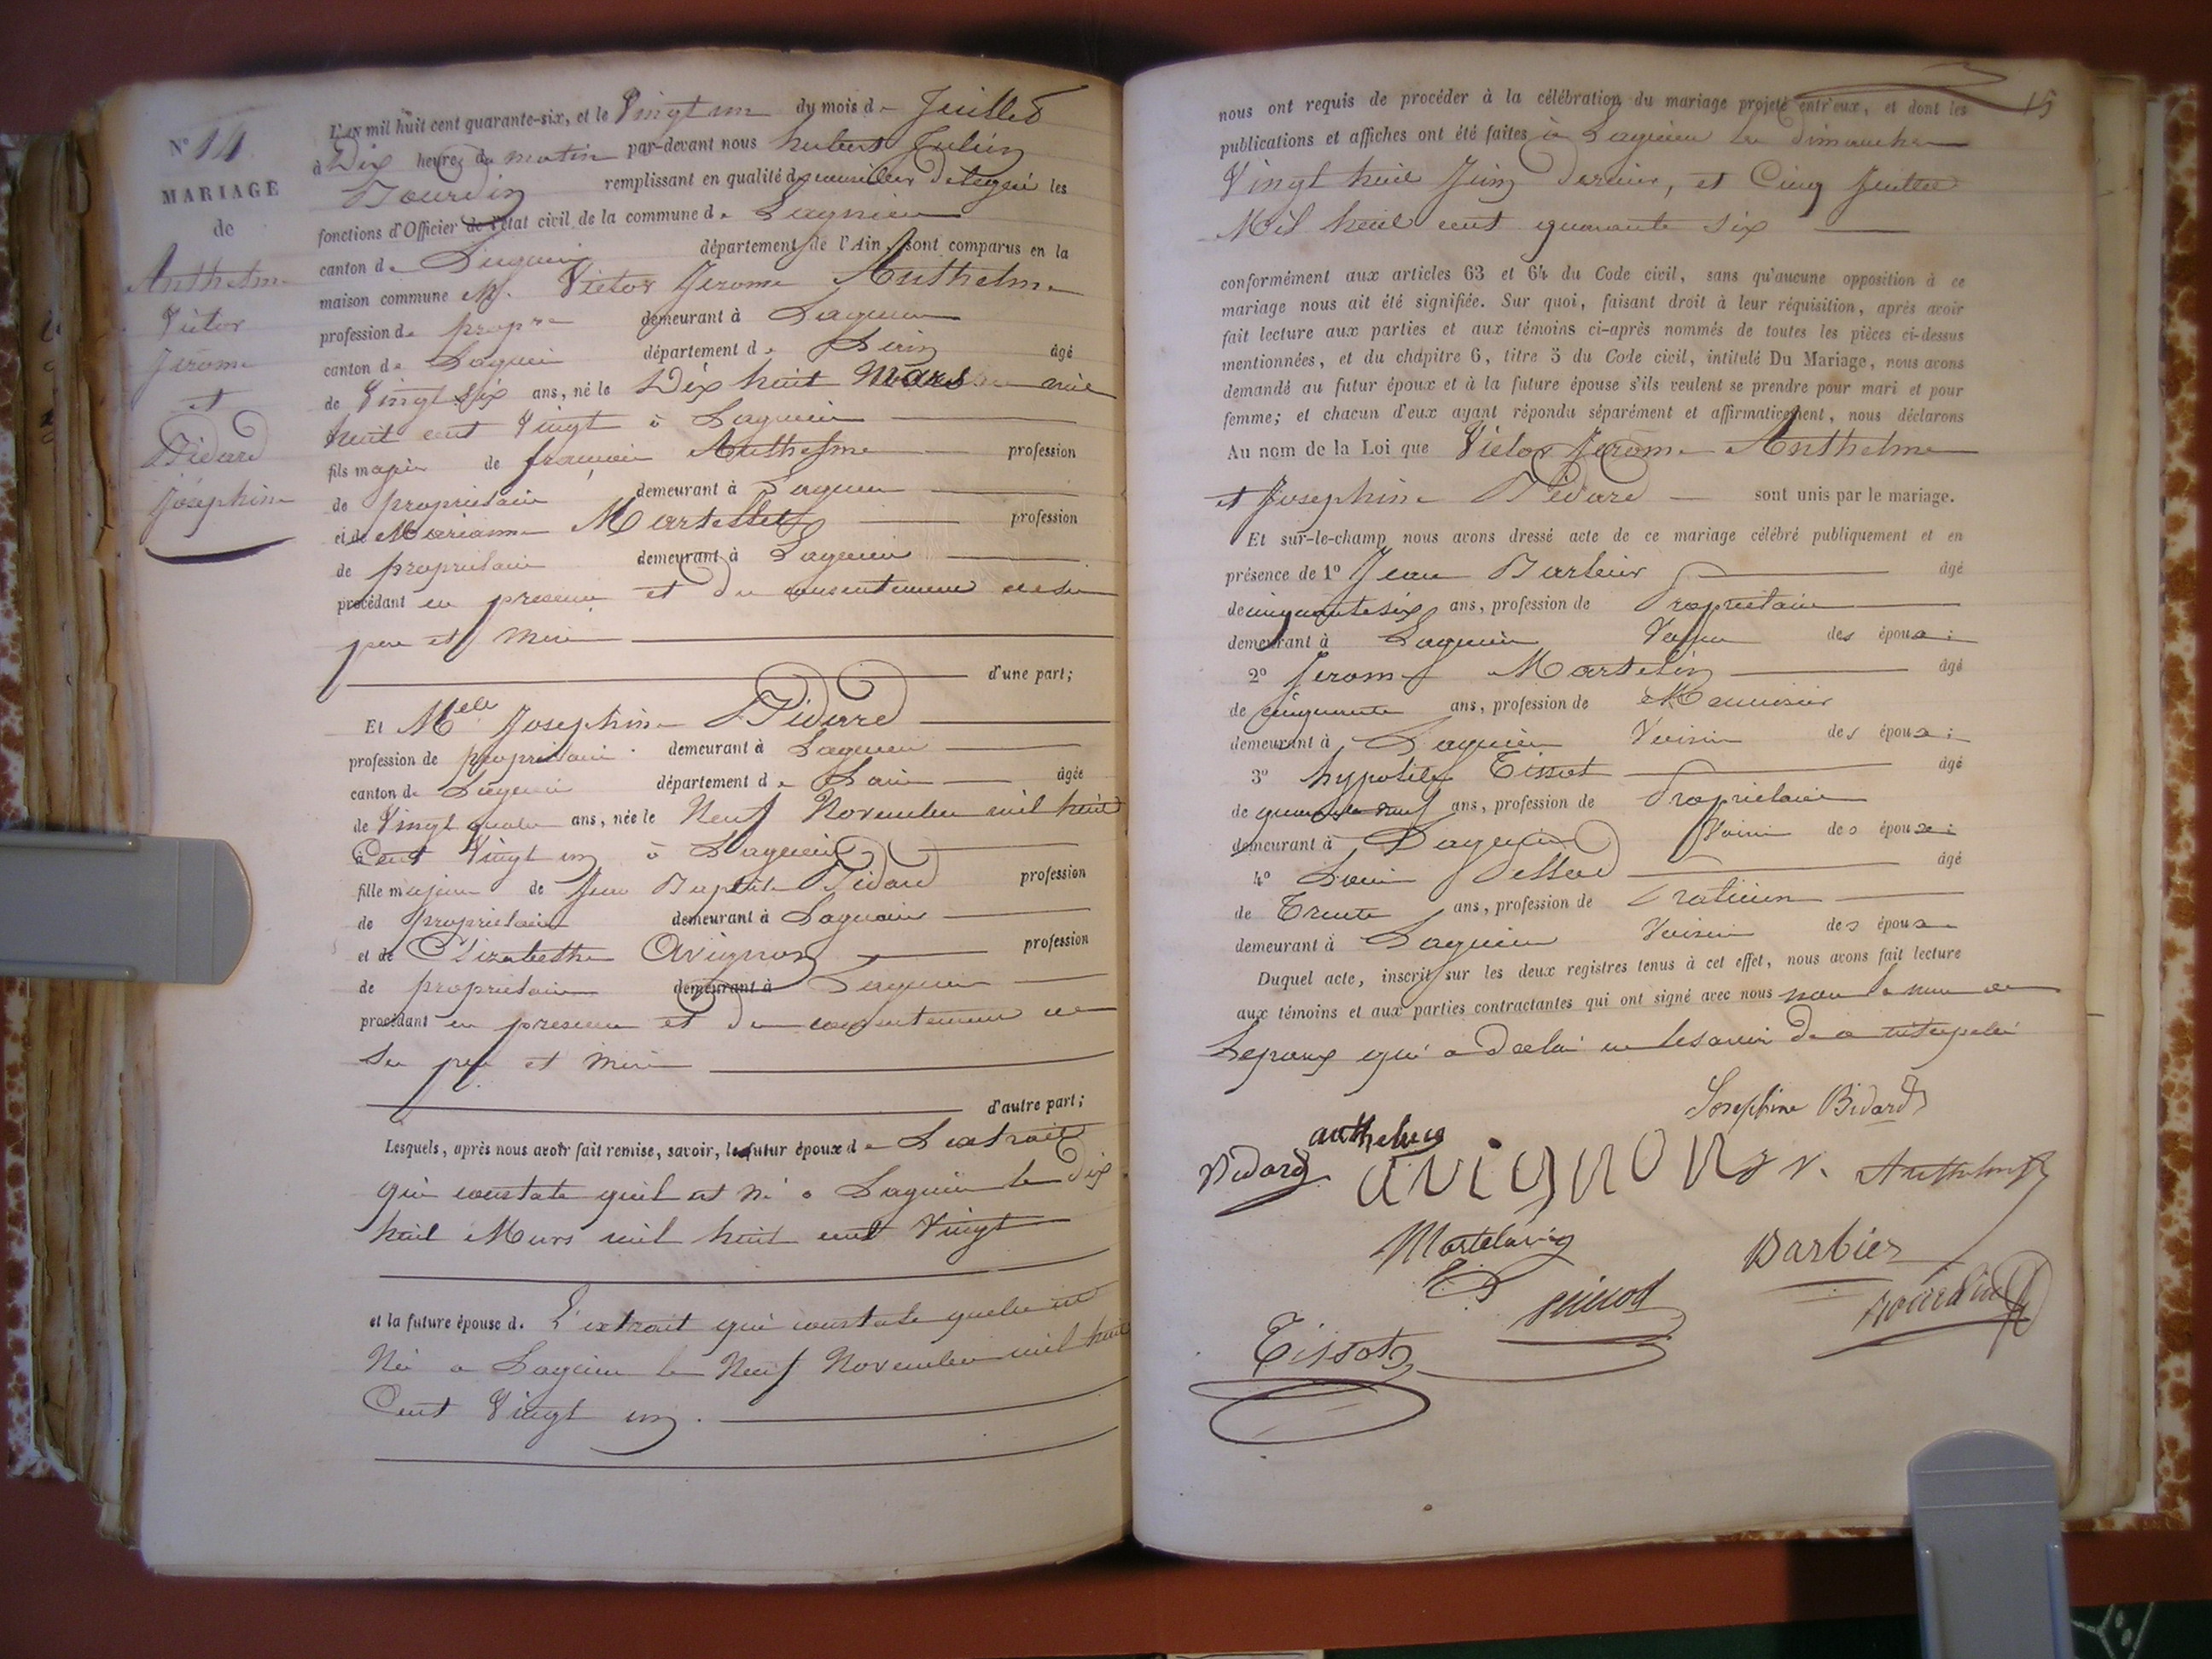 N° 14
MARIAGE
de
Anthelme
Victor
Jérome
et
Bidard
Joséphine
L'an mil huit cent quarante-six, et le Vingt un du mois de Juillet
à Dix heures du matin par-devant nous hubert Julien
Bourdin remplissant en qualité de conseiller délégué les
fonctions d'Officier de l'état civil de la commune de Lagnieu
canton de Lagnieu département de l'Ain, sont comparus en la
maison commune M. Victor Jerome Anthelme
profession de propre demeurant à Lagnieu
canton de Lagnieu département de Lain âgé
de Vingt Six ans, né le Dix huit Mars mil
huit cent Vingt à Lagnieu
fils majeur de françois Anthelme profession
de propriétaire demeurant à Lagnieu
et de Marianne profession
de propriétaire demeurant à Lagnieu
procédant en presence et du consentement de ses
pere et Mere
d'une part;
Et Melle Josephine Bidard
profession de propriétaire demeurant à Lagnieu
canton de Lagnieu département de Lain âgée
de Vingt quatre ans, née le Neuf Novembre mil huit
Cent Vingt un à Lagnieu
fille majeure de Jean Baptiste Bidard profession
de propriétaire demeurant à Lagnieu
et de Elizabethe Avignon profession
de propriétaire demeurant à Lagnieu
procédant en presence et du consentement de
Ses pere et Mere
d'autre part;
Lesquels, après nous avoir fait remise, savoir, le futur époux de Lextrait
qui constate quil est Né a Lagnieu le Dix
huit Mars mil huit cent Vingt
et la future épouse de L'extrait qui constate quelle est
Né a Lagnieu le Neuf Novembre mil huit
Cent Vingt un.
15
nous ont requis de procéder à la célébration du mariage projeté entr'eux, et dont les
publications et affiches ont été faites à Lagnieu les dimanches
Vingt huit Juin dernier, et Cinq Juillet
Mil huit cent quarante Six
conformément aux articles 63 et 64 du Code civil, sans qu'aucune opposition à ce
mariage nous ait été signifiée. Sur quoi, faisant droit à leur réquisition, après avoir
fait lecture aux parties et aux témoins ci-après nommés de toutes les pièces ci-dessus
mentionnées, et du chapitre 6, titre 5 du Code civil, intitulé Du Mariage, nous avons
demandé au futur époux et à la future épouse s'ils veulent se prendre pour mari et pour
femme; et chacun d'eux ayant répondu séparément et affirmativement, nous déclarons
Au nom de la Loi que Victor Jérome Anthelme
et Josephine Bidard sont unis par le mariage.
Et sur-le-champ nous avons dressé acte de ce mariage célébré publiquement et en
présence de 1° Jean Barbier âgé
de cinquante six ans, profession de Propriétaire
demeurant à Lagnieu des époux;
2° Jerome Martelin âgé
de cinquante ans, profession de Menuisier
demeurant à Lagnieu Voisin des époux;
3° hypolite Tissot âgé
de quarante neuf ans, profession de Propriétaire
demeurant à Lagnieu Voisin des époux;
4° Louis âgé
de Trente ans, profession de Praticien
demeurant à Lagnieu Voisin des époux
Duquel acte, inscrit sur les deux registres tenus à cet effet, nous avons fait lecture
aux témoins et aux parties contractantes qui ont signé avec nous non la mere de
Lepoux qui a declaré ne le savoir de a interpelé
Josephine Bidard
anthelme
Bidard avignon J V. Anthelme
Martelin Barbier
Bourdin
Tissot